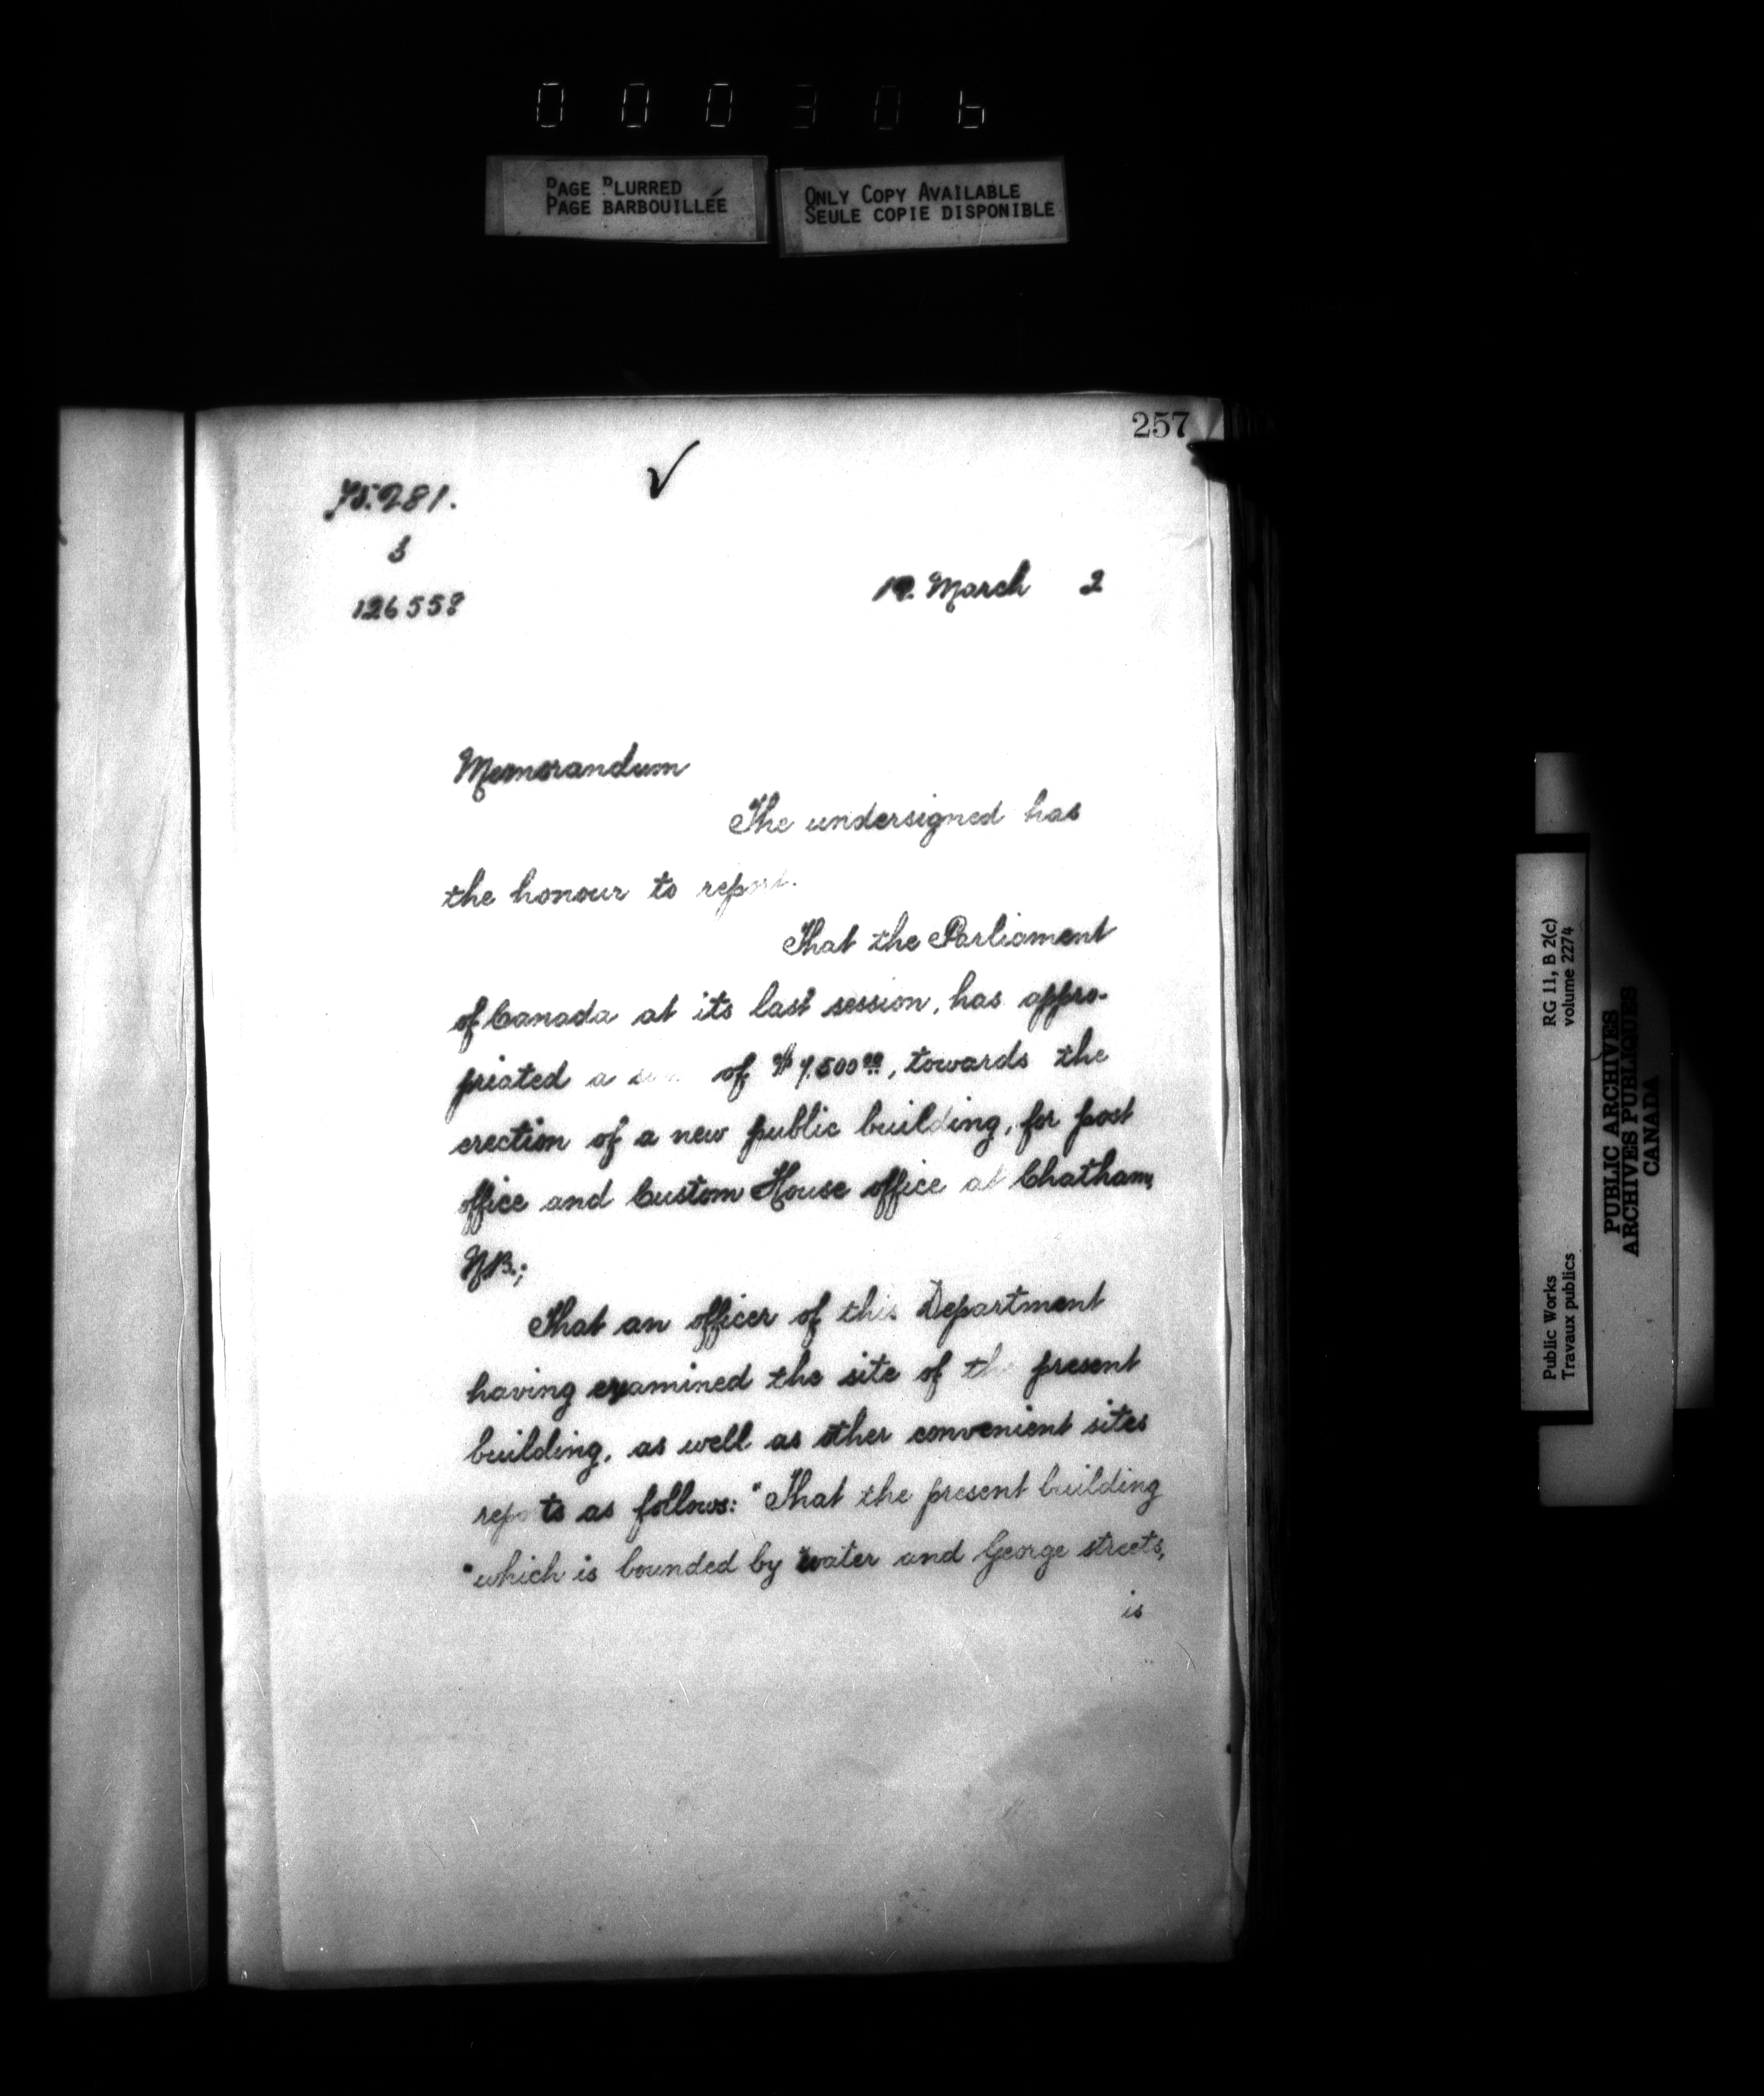 000306
PAGE BLURRED
PAGE BARBOUILLÉE
ONLY COPY AVAILABLE
SEULE COPIE DISPONIBLE
257
March 2
Memorandum
The undersigned has
the honour to report.
That the Parliament
of Canada at its last session, has appro-
priated a sum of towards the
erection of a new public building, for post
office and Custom House office at Chatham,
N.B.;
That an officer of this Department
having examined the site of the present
building, as well as other convenient sites
reports as follows: "That the present building
"which is bounded by Water and George streets,
is
Public Works
Travaux publics
RG 11, B 2(c)
volume 2274
PUBLIC ARCHIVES
ARCHIVES PUBLIQUES
CANADA